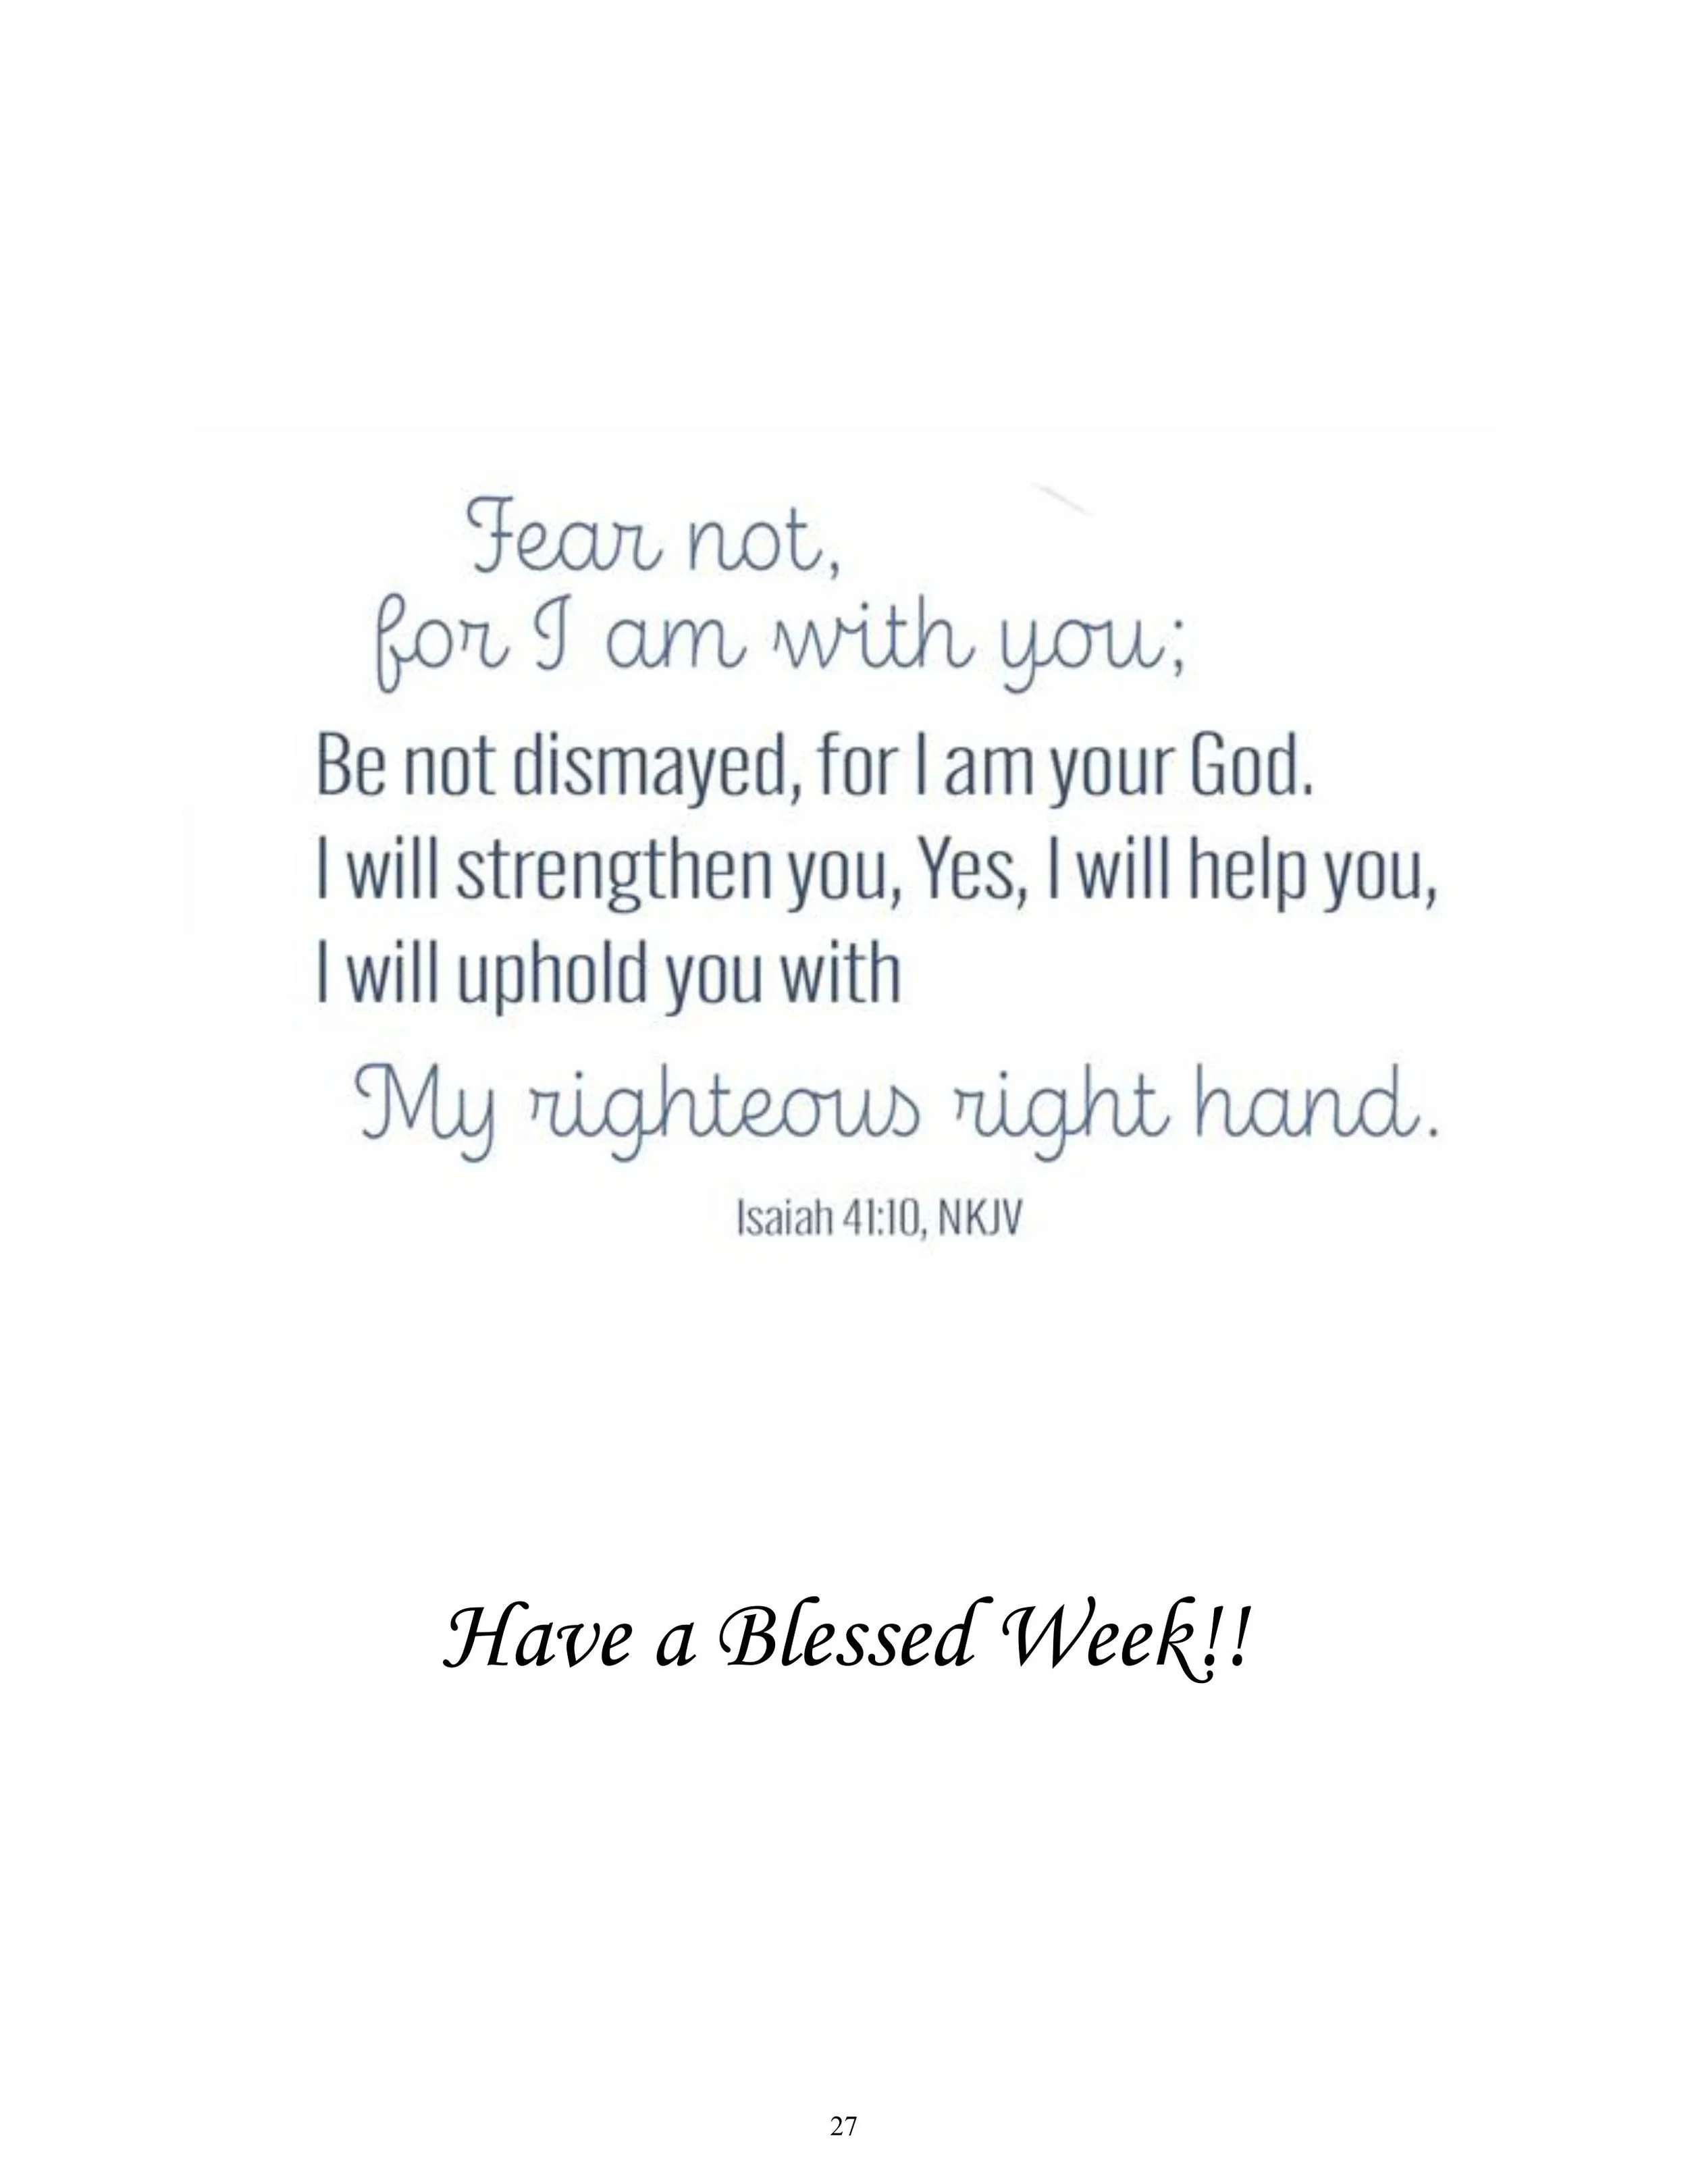 Fear not,
for I am with you;
Be not dismayed, for I am your God.
I will strengthen you, Yes, I will help you,
I will uphold you with
My righteous right hand.
Isaiah 41:10, NKJV
Have a Blessed Week!!
27